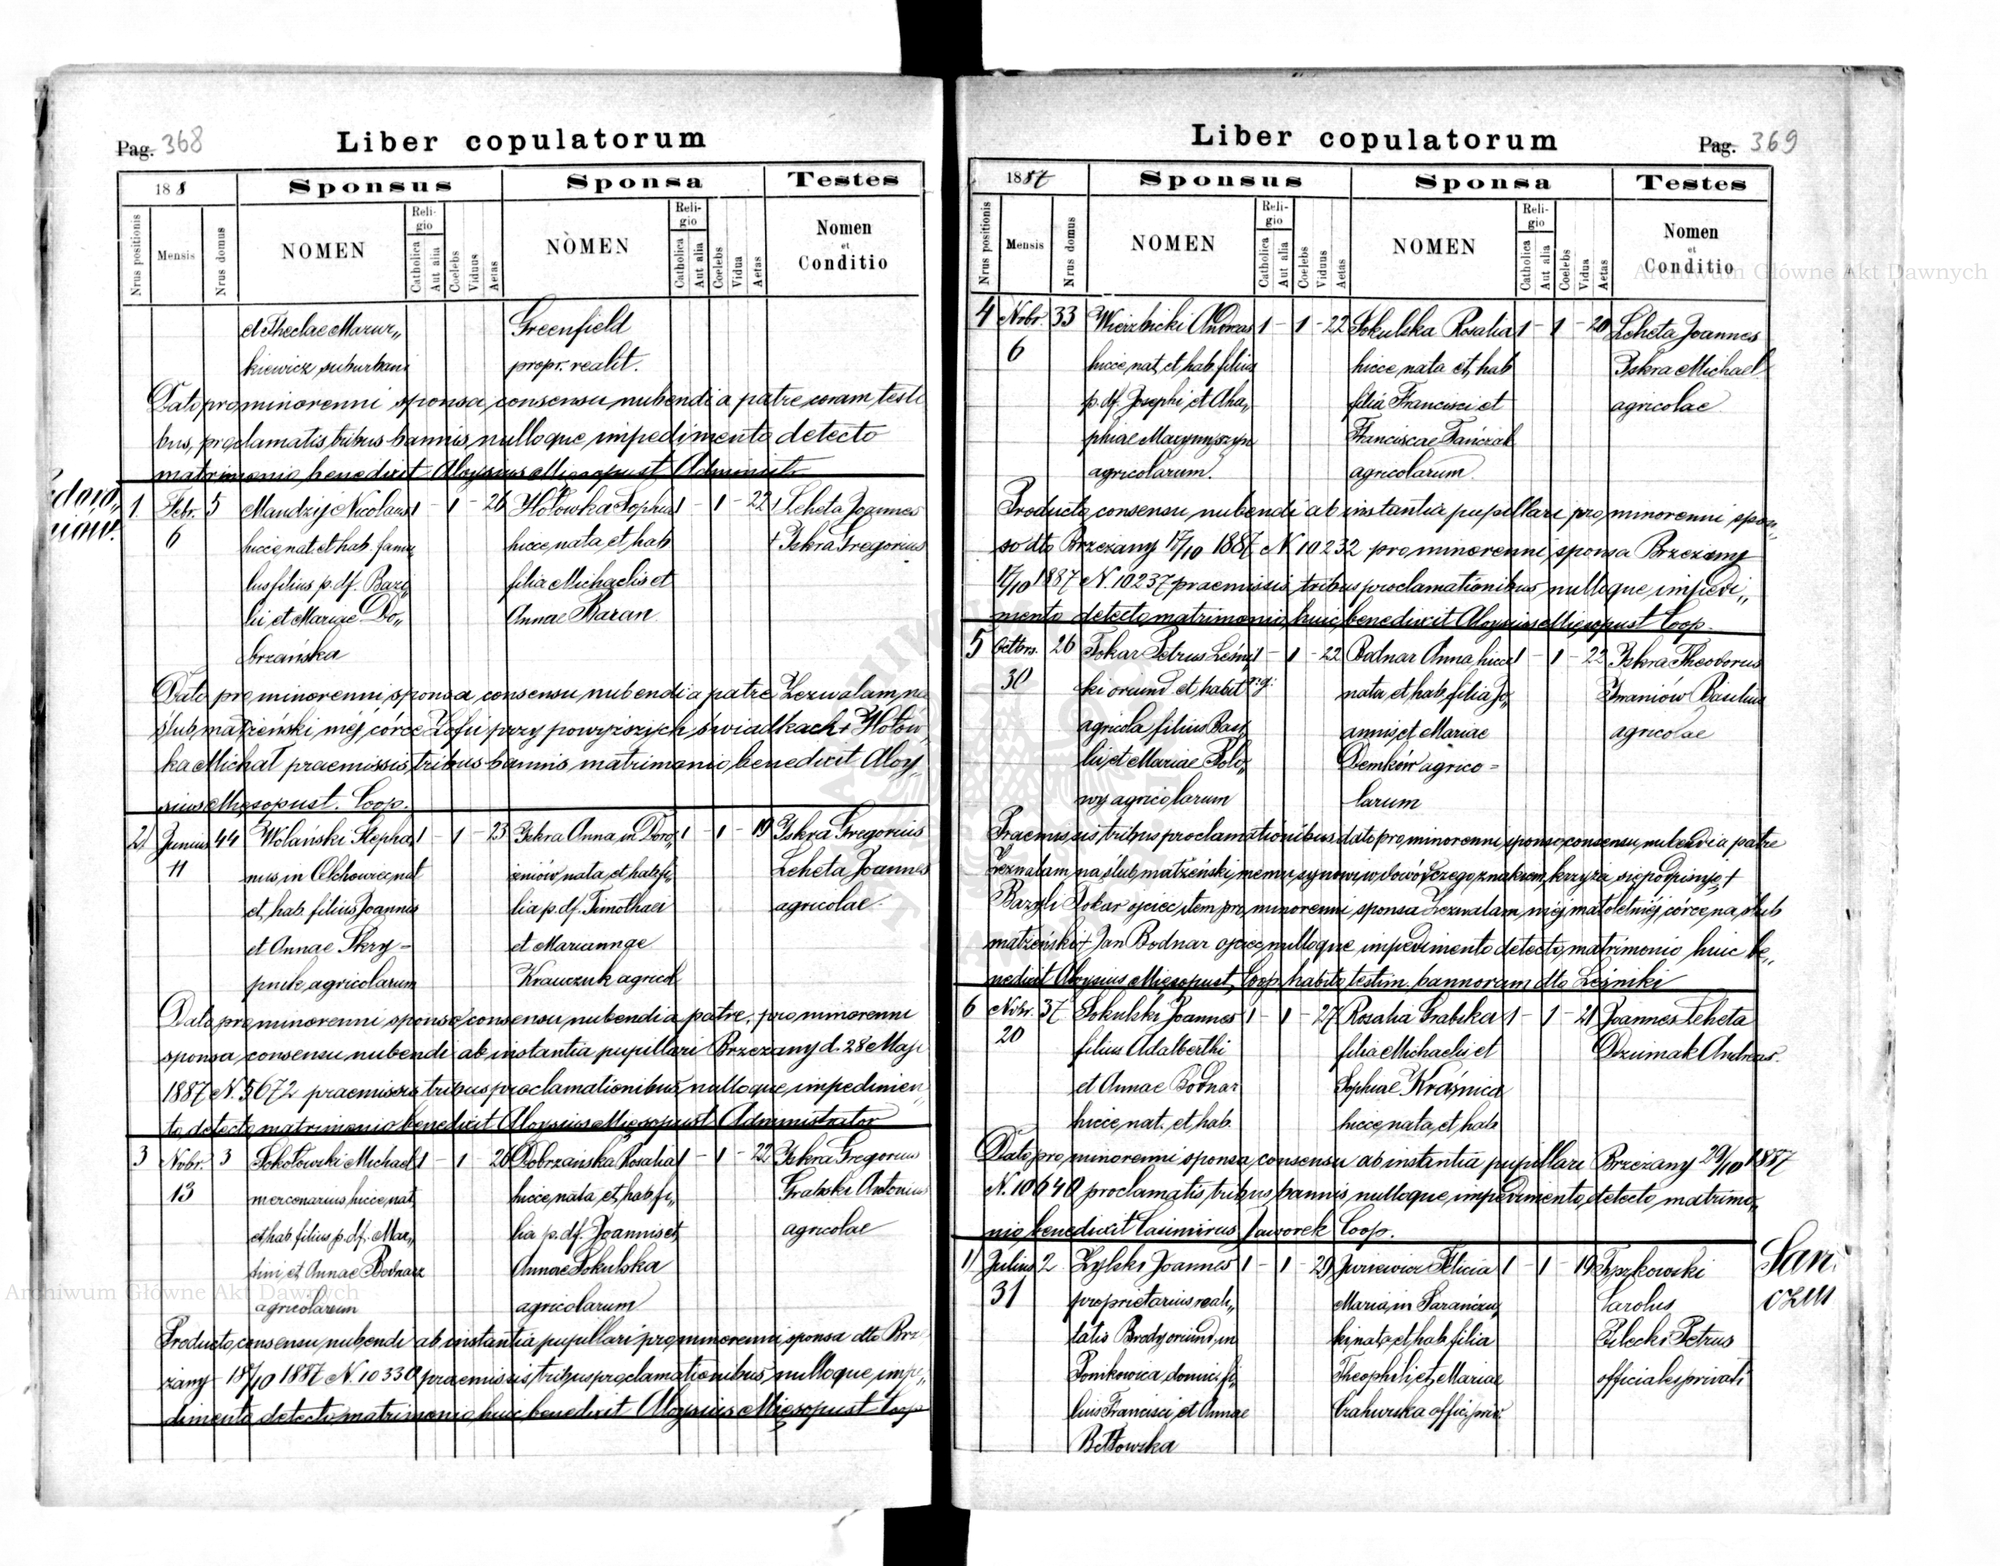 Pag. 368
Liber copulatorum
188
Sponsus
Sponsa
Testes
Nrus positionis
Mensis
Nrus domus
NOMEN
Religio
Catholica
Aut alia
Coelebs
Viduus
Aetas
NOMEN
Religio
Catholica
Aut alia
Coelebs
Vidua
Aetas
Nomen
et
Conditio
et Theclae Mazur„
kiewicz suburbani
Greenfield
propr. realit.
Dato pro minorenni sponsa consensu nubendi a patre coram testi
bus, proclamatis tribus bannis nulloque impedimento detecto
matrimonio benedixit Aloysius Mięsopust Administ.
1 Febr. 5 Mandzij Nicolaus 1 - 1 - 26 Hołowka Sophia 1 - 1 - 22 + Leheta Joannes
6 hicce nat. et hab. famu hicce nata et hab + Iskra Gregorius
lus filius p. df. Bazi filia Michaelis et
lii et Mariae Do„ Annae Baran
brzańska
Dato pro minorenni sponsa consensu nubendi a patre Zezwalam na
ślub małżeński mej córce Zofii przy powyższych świadkach + Hołów
ka Michał praemissis tribus bannis matrimonio benedixit Aloy„
sius Mięsopust. Coop.
2 Junius 44 Wolański Stepha 1 - 1 - 23 Iskra Anna in Doro 1 - 1 - 19 Iskra Gregorius
11 nus, in Olchowiec nat żniów nata et hab fi„ Leheta Joannes
et hab. filius Joannis lia p. df. Timothaei agricolae
et Annae Skry- et Mariannae
pnik agricolarum Krawczuk agricol
Dato pro minorenni sponso consensu nubendi a patre, pro minorenni
sponsa consensu nubendi ab instantia pupillari Brzezany d. 28 Maji
1887 N. 5672 praemissis tribus proclamationibus nulloque impedimen„
to detecto matrimonio benedixit Aloysius Mięsopust Administrator
3 Nobr. 3 Sokołowski Michael 1 - 1 - 26 Dobrzańska Rosalia 1 - 1 - 22 Iskra Gregorius
13 mercenarius hicce nat, hicce nata et hab fi„ Grabski Antonius
et hab filius p. df. Mar„ lia p. df. Joannis et agricolae
tini et Annae Bodnarz Annae Sokulska
agricolarum agricolarum
Producto consensu nubendi ab instantia pupillari pro minorenni sponsa dto Brz
zany 18/10 1887 N. 10330 praemissis tribus proclamationibus nulloque impe„
dimento detecto matrimonio huic benedixit Aloysius Mięsopust Coop
Pag. 369
Liber copulatorum
1887
Sponsus
Sponsa
Testes
Nrus positionis
Mensis
Nrus domus
NOMEN
Religio
Catholica
Aut alia
Coelebs
Viduus
Aetas
NOMEN
Religio
Catholica
Aut alia
Coelebs
Vidua
Aetas
Nomen
et
Conditio
4 Nobr. 33 Wierzbicki Andreas 1 - 1 - 22 Sokulska Rosalia 1 - 1 - 20 Leheta Joannes
6 hicce nat, et hab. filius hicce nata et hab Iskra Michael
p. df. Josephi et Aha„ filia Francisci et agricolae
phiae Marynyszyn Franciscae Tańczak
agricolarum. agricolarum
Producto consensu nubendi ab instantia pupillari pro minorenni spon„
so dto Brzezany 17/10 1887 N 10232 pro minorenni sponsa Brzezany
17/10 1887 N. 10237 praemissis tribus proclamationibus nulloque impedi„
mento detecto matrimonio huic benedixit Aloysius Mięsopust Coop.
5 Octbris. 26 Tokar Petrus Leśni 1 - 1 - 22 Bodnar Anna hicce 1 - 1 - 22 Iskra Theodorus
30 ki oriund et habit nata et hab filia Jo„ Imaniów Basilius
agricola filius Basi annis et Mariae agricolae
lii et Mariae Polo„ Demków agrico=
wy agricolarum larum
Praemissis tribus proclamationibus dato pro minorenni sponso consensu nubendi a patre
Zezwalam na ślub małżeński memu synowi w dowód czego znakiem krzyża się podpisuję +
Bazyli Tokar ojciec item pro minorenni sponsa Zezwalam mej małoletniej córce na ślub
małżeński + Jan Bodnar ojciec nulloque impedimento detecto matrimonio huic be„
nedixit Aloysius Mięsopust, Coop. habito testim. bannorum dto Leśniki
6 Nobr. 37 Sokulski Joannes 1 - 1 - 27 Rosalia Grabska 1 - 1 - 21 Joannes Leheta
20 filius Adalberthi filia Michaelis et Dziumak Andreas.
et Annae Bodnar Sophiae Kraśnica
hicce nat. et hab. hicce nata et hab
Dato pro minorenni sponsa consensu ab instantia pupillari Brzezany 29/10 1887
N. 10640 proclamatis tribus bannis nulloque impedimento detecto matrimo„
nio benedixit Casimirus Jaworek Coop.
1) Julius 2 Zylski Joannes 1 - 1 - 29 Juriewicz Felicia 1 - 1 - 19 Tyszkowski
31 proprietarius reali„ Maria, in Sarańczu Carolus
tatis Brody oriund, in ki nata et hab filia Pilecki Petrus
Ponikowica domici fi„ Theophili et Mariae officiales privati
lius Francisci et Annae
Bełtowska
Archiwum Główne Akt Dawnych
Archiwum Główne Akt Dawnych